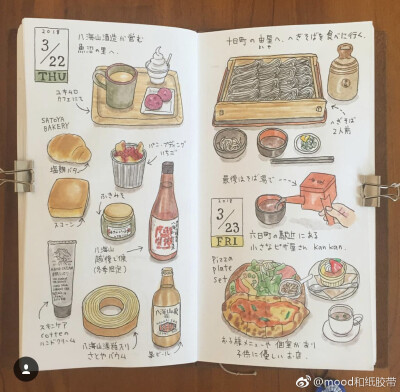 2018
3/22
THU
八海山酒造が営む
魚沼の里へ.
ユキムロ
カフェにて
SATOYA
BAKERY
塩麹バター
パン・プディング
いちご
スコーン
ふきみそ
八海山
(冬季限定)
スキンケア
ハンドクリーム
八海山酒粕入り
さとやバウム
泉ビール
十日町の由屋へ、へぎそばを食べに行く.
へぎそば
2人前
最後はそば湯で
2018
3/23
FRI
六日町の駅近にある
小さなピザ屋さん kan kan.
Pizza
plate
set
お子様メニューや個室があり
子供に優しいお店.
@mood和纸胶带